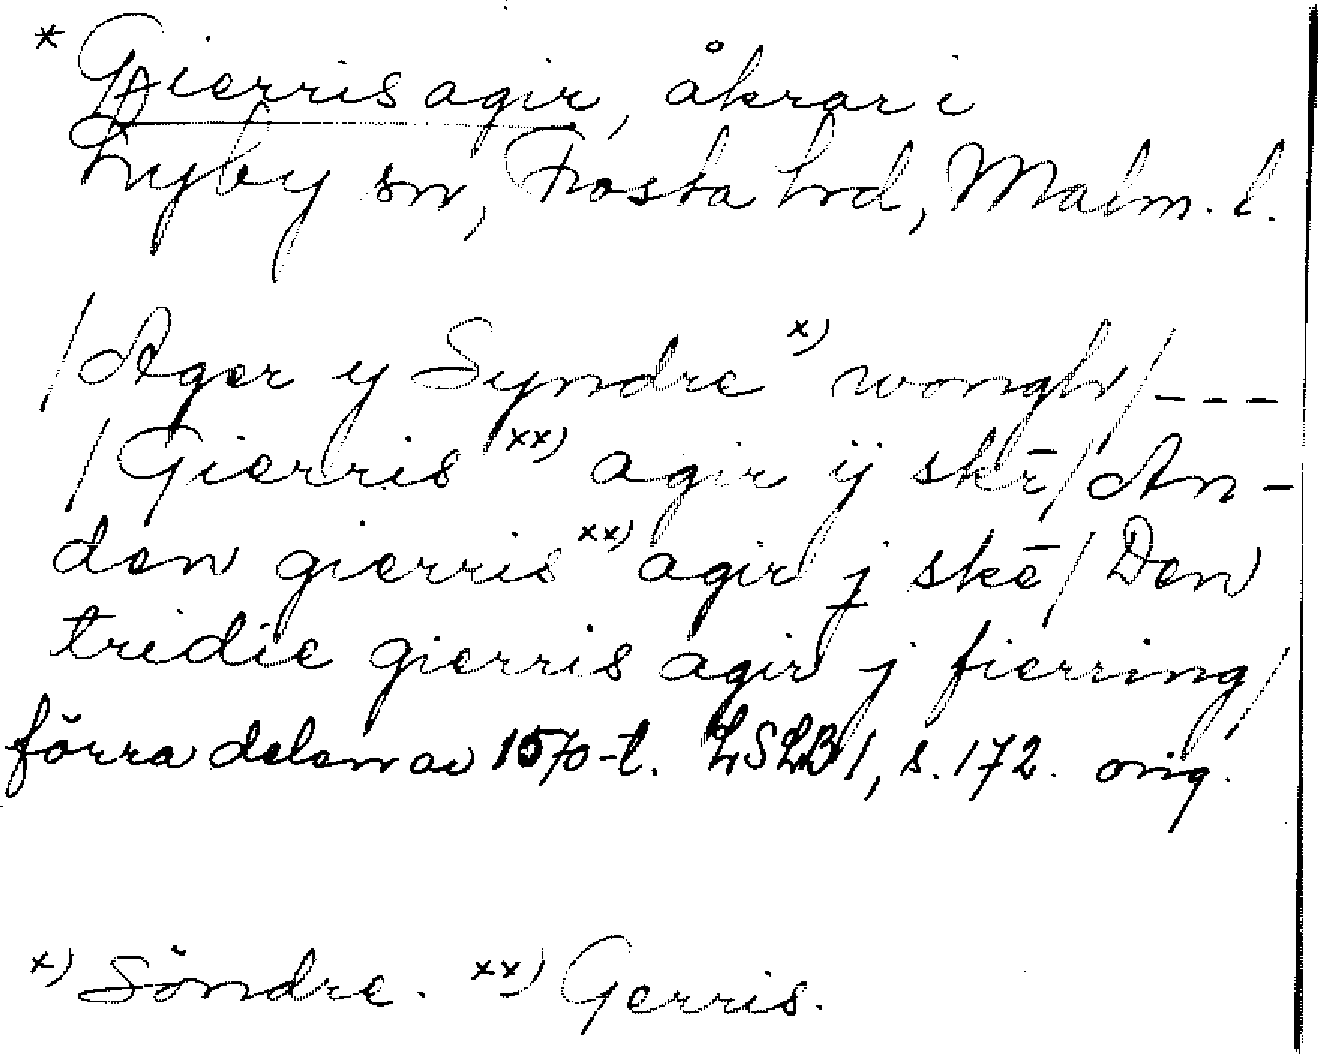 * Gierris agir, åkrar i
Lyby sn, Frosta hrd, Malm. l.
/Ager y Syndre x) wongh/---
/Gierris xx) agir ij skē/An-
den gierris xx) agir j skē/Den
tridie gierris agir j fierring/
förra delen av 1570-t. LSLB 1, s. 172. orig.
x) Söndre. xx) Gerris.